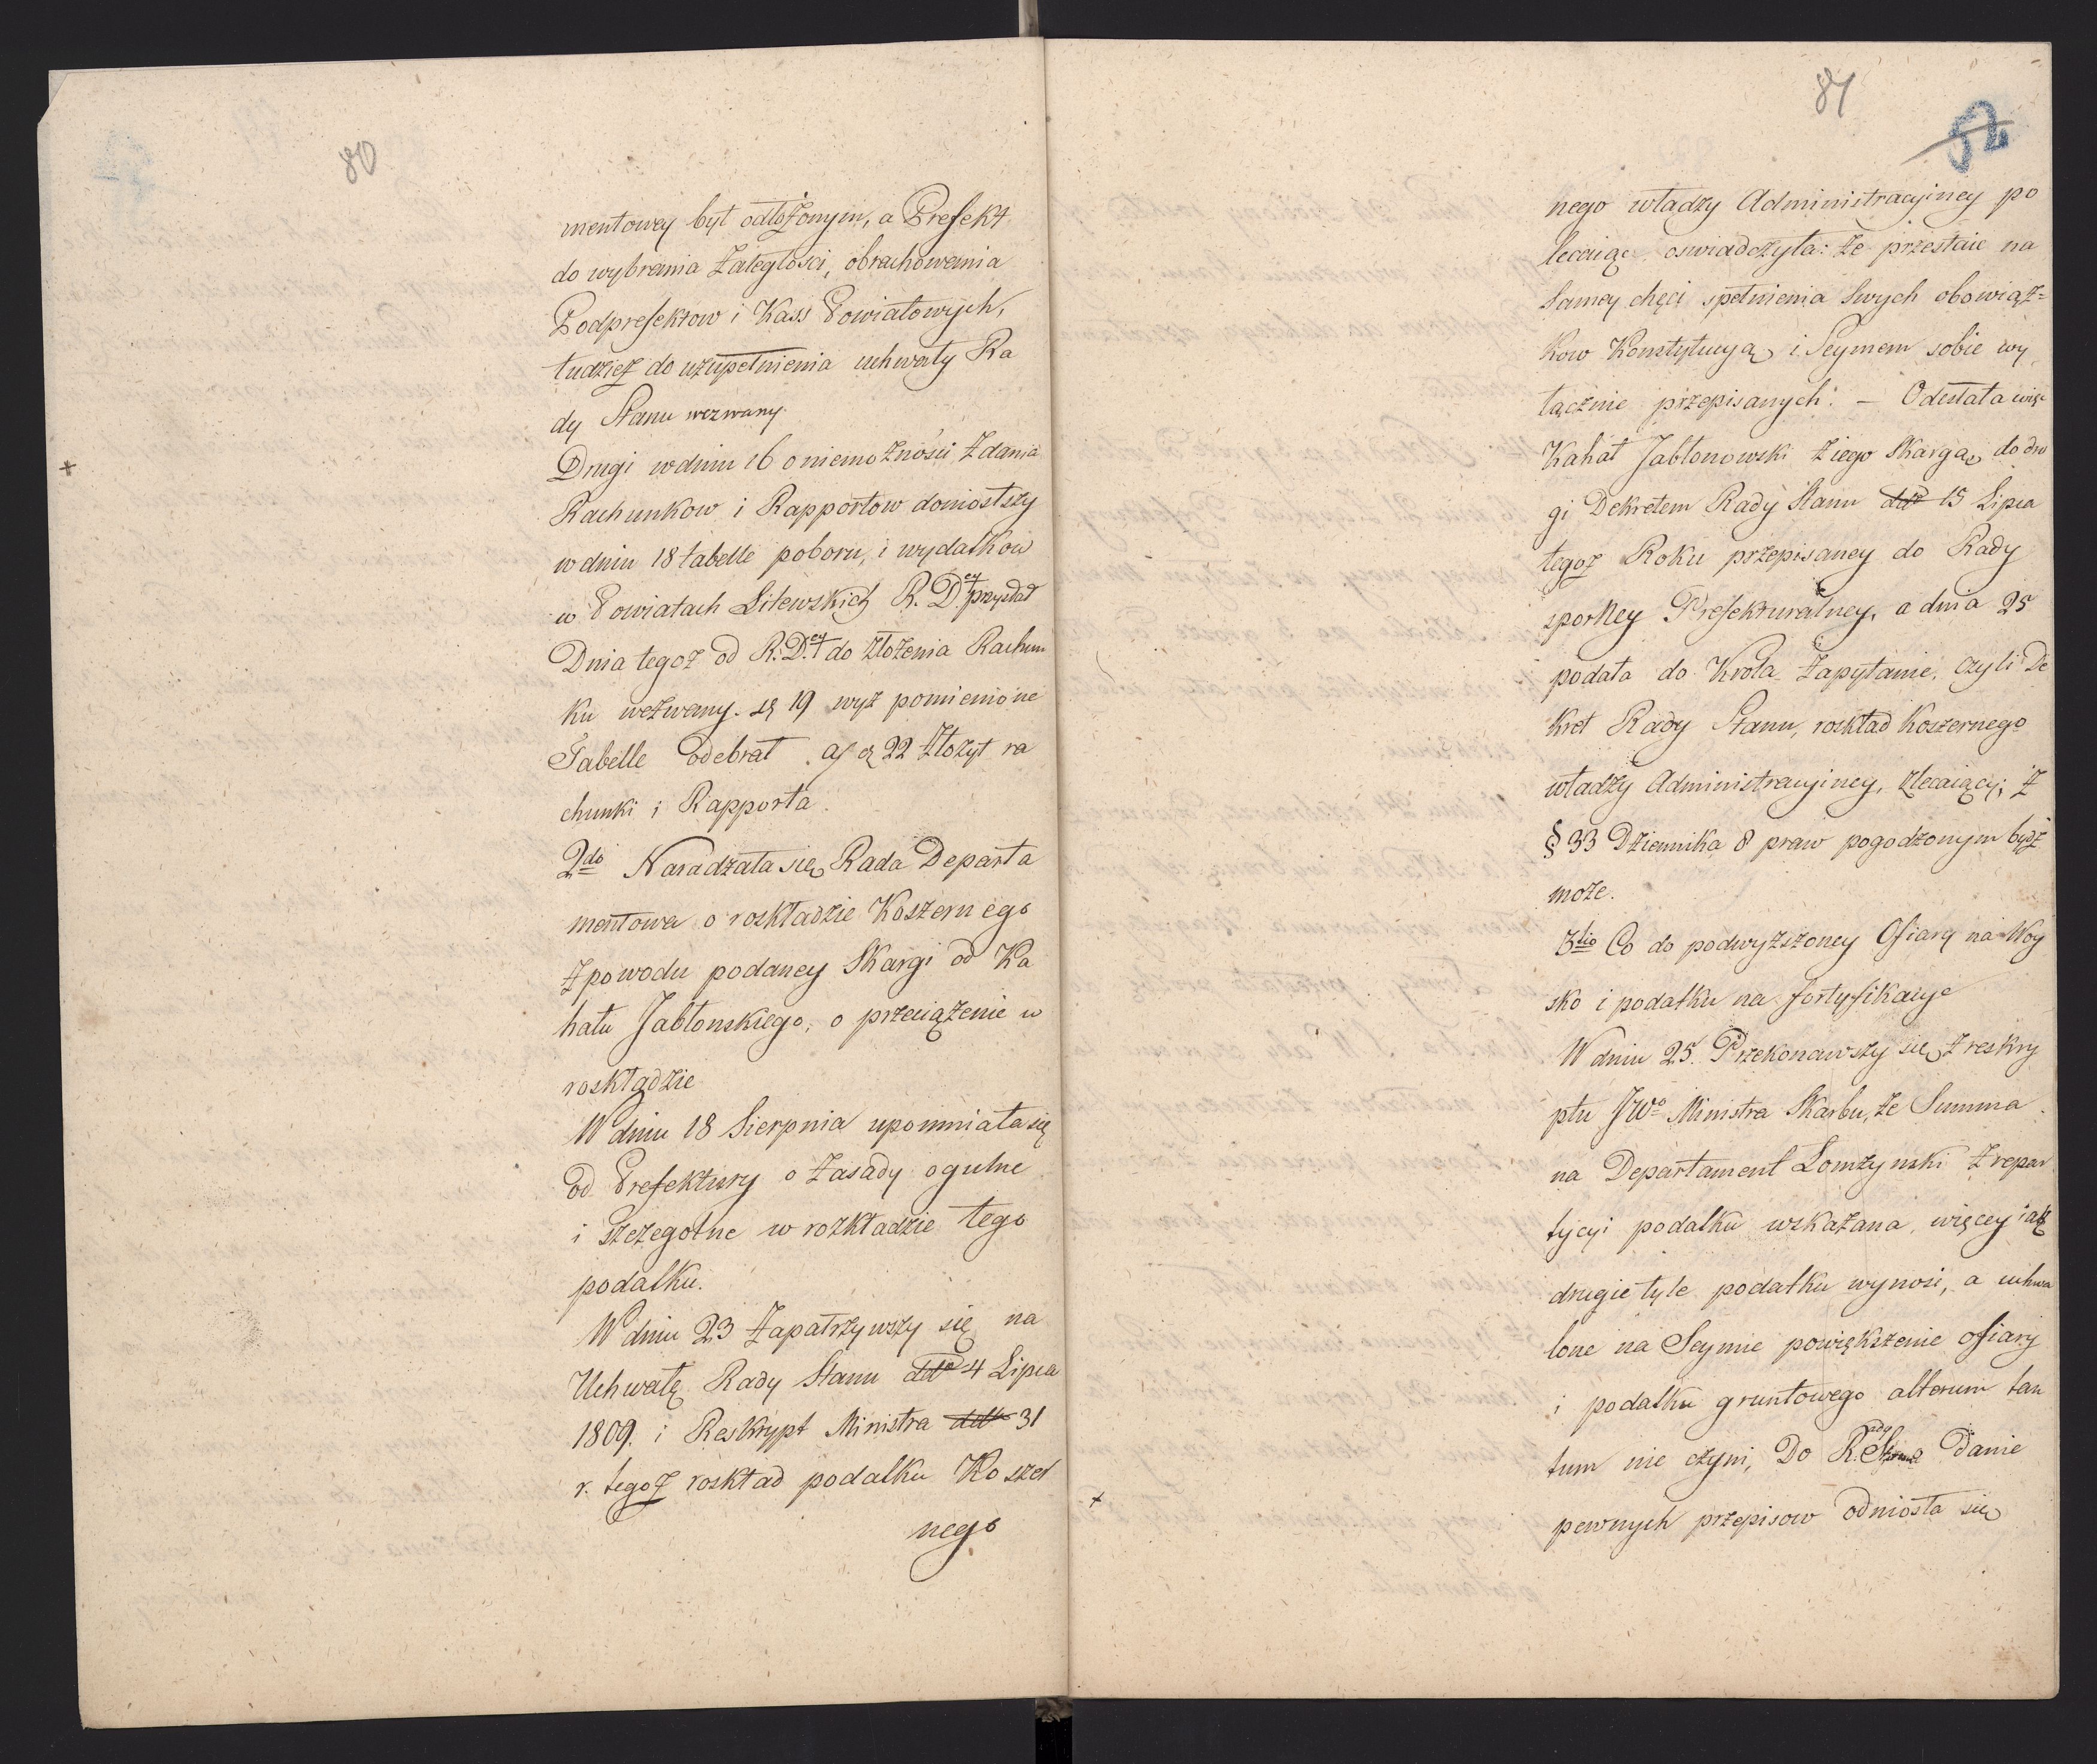 80
mentowey był odłożonym, a Prefekt
do wybrania Zaległości, obrachowania
Podprefektow i Kass Powiatowych,
tudzież do uzupełnienia uchwały Ra
dy Stanu wezwany.
Drugi w dniu 16 o niemożności Zdania
Rachunkow i Rapportow doniosłszy
w dniu 18 tabelle poboru, i wydatkow
w Powiatach Litewskich R. D.ey przysłał
Dnia tegoż od R: D.ey do złożenia Rachun
ku wezwany. 19 wyż pomienione
Tabelle odebrał 22 Złożył ra
chunki i Rapporta.
2do Naradzała się Rada Departa
mentowa o roskładzie Koszernego
z powodu podaney Skargi od Ka
hału Jabłonskiego, o przeciążenie w
roskładzie
W dniu 18 Sierpnia upomniała się
od Prefektury o Zasady ogulne
i szczegolne w rozkładzie tego
podatku.
W dniu 23 Zapatrzywszy się na
Uchwałę Rady Stanu dtto 4 Lipca
1809. i Reskrypt Ministra dtto 31
r. tegoż roskład podatku Koszer
nego
81
52
nego władzy Administracyiney po
lecaiąc, oswiadczyła: że przestaie na
Samey chęci spełnienia Swych obowiąz=
kow Konstytucyą i Seymem sobie wy
łącznie przepisanych: – Odesłała więc
Kahał Jabłonowski z iego Skargą do dro
gi Dekretem Rady Stanu dtto 15 Lipca
tegoż Roku przepisaney do Rady
sporney Prefekturalney, a dnia 25
podała do Krola Zapytanie, czyli De
kret Rady Stanu, roskład Koszernego
władzy Administracyiney, zlecaiący; z
§ 33 Dziennika 8 praw pogodzonym bydź
może.
3tio Co do podwyższoney Ofiary na Woy
sko i podatku na fortyfikacye
W dniu 25. Przekonawszy się z reskry
ptu JWo Ministra Skarbu, że Summa
na Departament Łomżynski z repar
tycyi podatku wskazana, więcey iak
drugie tyle podatku wynosi, a uchwa
lone na Seymie powiększenie ofiary
i podatku gruntowego alterum tan
tum nie czyni, Do Rady Stanu o danie
pewnych przepisow odniosła się